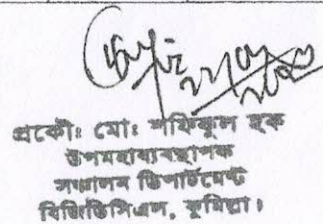 প্রকৌঃ মোঃ শফিকুল হক
উপমহাব্যবস্থাপক
সঞ্চালন ডিপার্টমেন্ট
বিজিডিসিএল, কুমিল্লা।